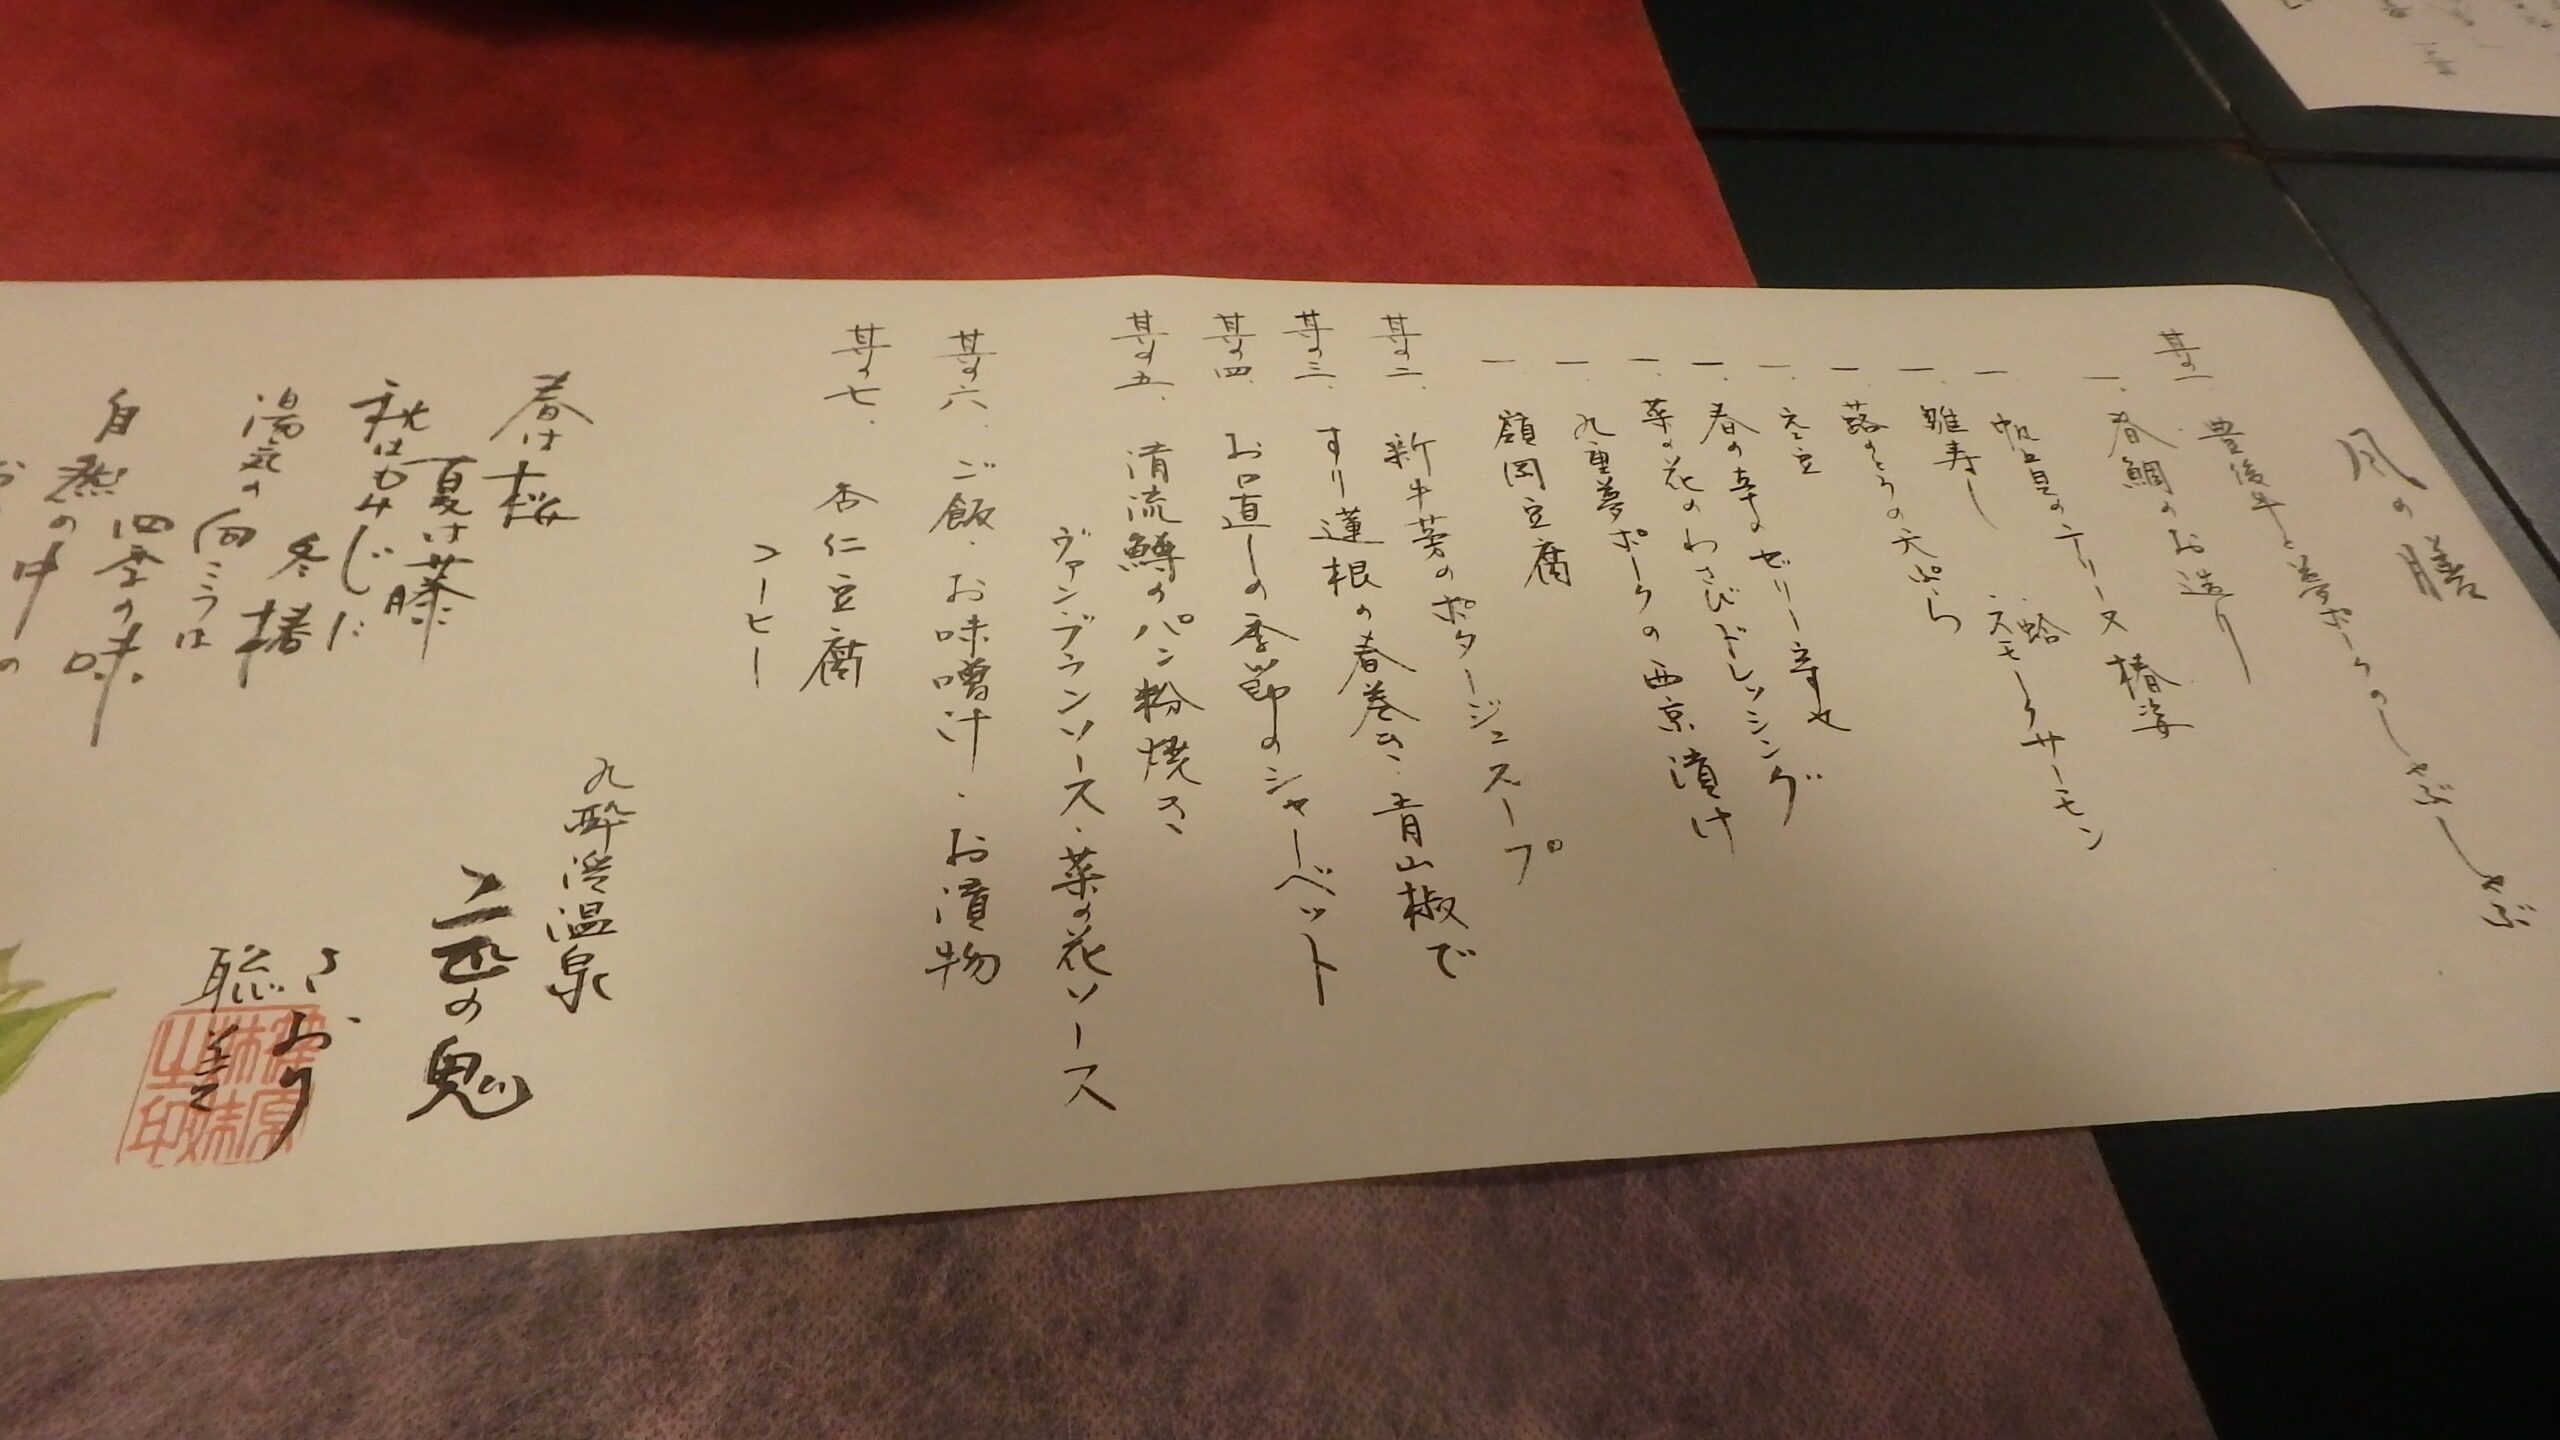 風の膳
豊後牛と夢ポークのしゃぶしゃぶ
其の一
一、春鯛のお造り
一、帆立貝のテリーヌ 椿姿
蛤
スモークサーモン
一、雛寿し
一、蕗のとうの天ぷら
一、空豆
一、春の幸のゼリー寄せ
一、菜の花のわさびドレッシング
一、九重夢ポークの西京漬け
一、嶺岡豆腐
其の二、新牛蒡のポタージュスープ
其の三、すり蓮根の春巻き、青山椒で
其の四、お口直しの季節のシャーベット
其の五、清流鱒のパン粉焼き
ヴァンブランソース・菜の花ソース
其の六、ご飯・お味噌汁・お漬物
其の七、杏仁豆腐
コーヒー
春は桜
夏は藤
秋はもみじに
冬椿
湯気の向こうは
四季の味
自然の中の
九酔渓温泉
二匹の鬼
さおり
聡美